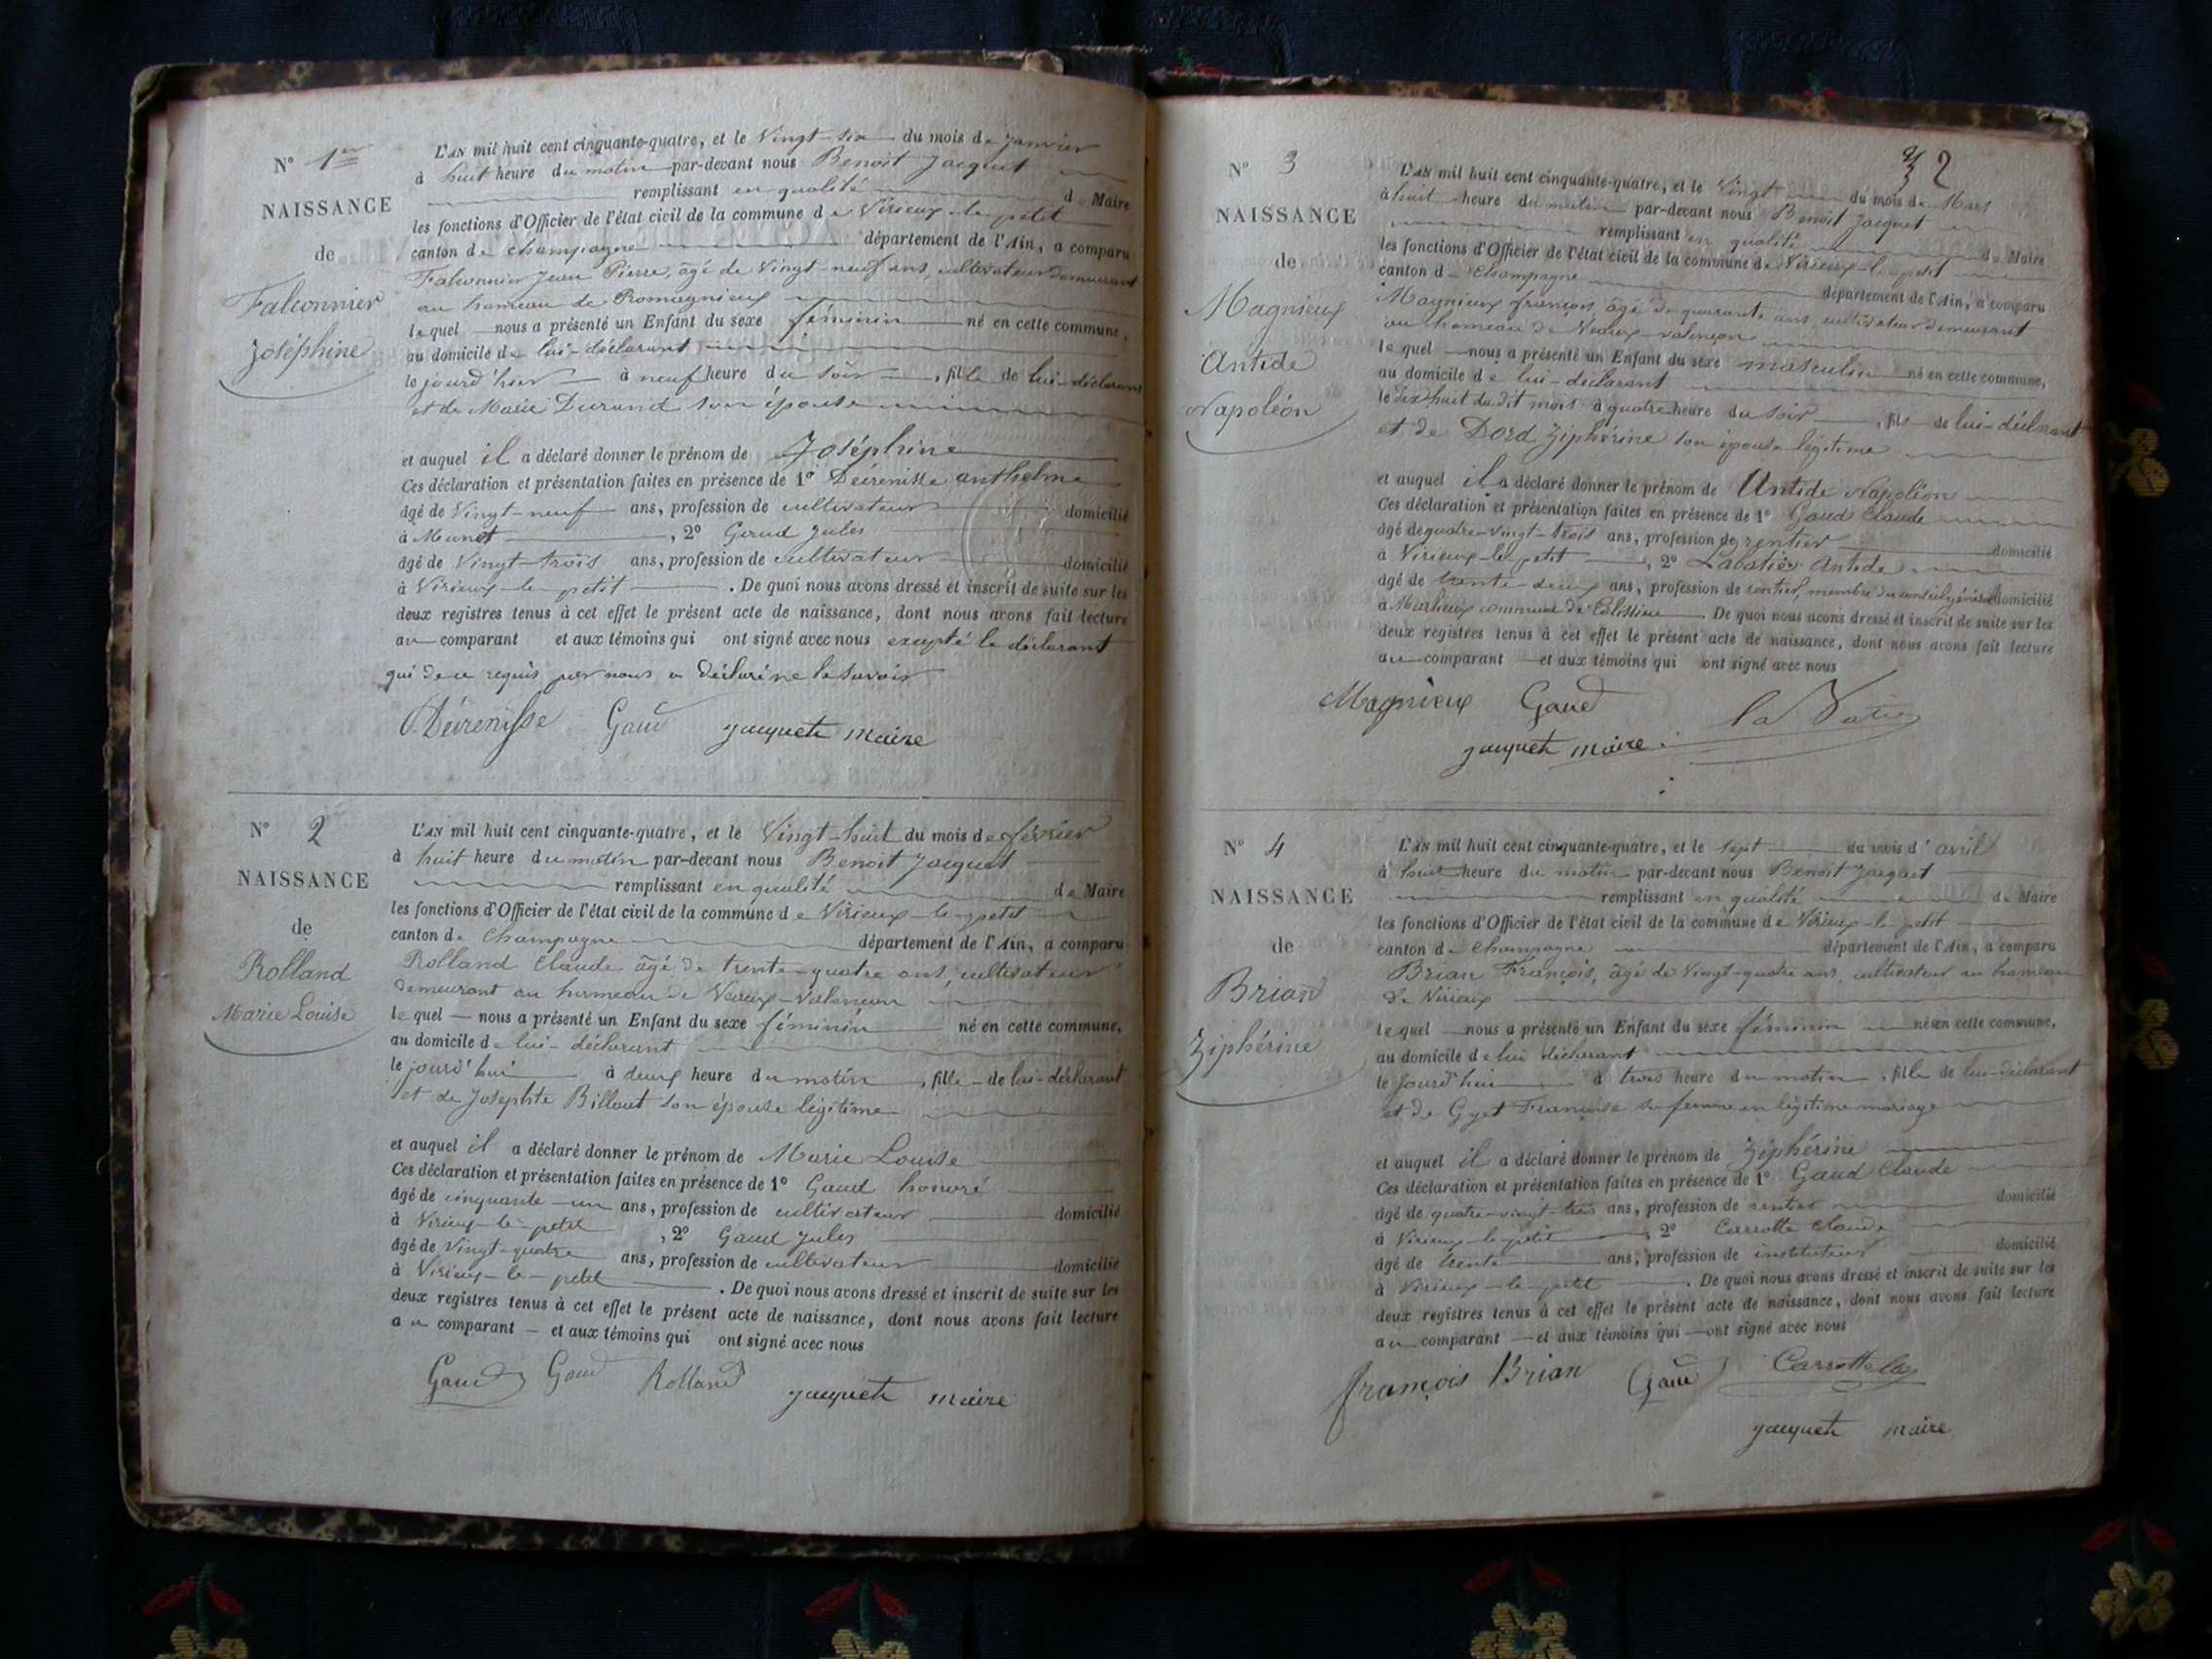 N° 1er
NAISSANCE
de
Falconnier
Joséphine
L'AN mil huit cent cinquante-quatre, et le Vingt-six du mois de Janvier
à huit heure du matin par-devant nous Benoit Jacquet
remplissant en qualité de Maire
les fonctions d'Officier de l'état civil de la commune de Virieux-le-petit
canton de Champagne département de l'Ain, a comparu
Falconnier Jean Pierre, âgé de Vingt-neuf ans, cultivateur demeurant
au hameau de Romagnieux
lequel nous a présenté un Enfant du sexe féminin né en cette commune,
au domicile de lui-déclarant
le jourd'hier à neuf heure du soir, fille de lui-déclarant
et de Marie Durand son épouse
et auquel il a déclaré donner le prénom de Joséphine
Ces déclaration et présentation faites en présence de 1° Déirenisse anthelme
âgé de Vingt-neuf ans, profession de cultivateur domicilié
à Munet, 2° Gaud Jules
âgé de Vingt-trois ans, profession de cultivateur domicilié
à Virieux-le-petit. De quoi nous avons dressé et inscrit de suite sur les
deux registres tenus à cet effet le présent acte de naissance, dont nous avons fait lecture
au comparant et aux témoins qui ont signé avec nous excepté le déclarant
qui de ce requis par nous a déclaré ne le savoir
Déirenisse Gaud jacquet maire
N° 2
NAISSANCE
de
Rolland
Marie Louise
L'AN mil huit cent cinquante-quatre, et le Vingt-huit du mois de février
à huit heure du matin par-devant nous Benoit Jacquet
remplissant en qualité de Maire
les fonctions d'Officier de l'état civil de la commune de Virieux-le-petit
canton de Champagne département de l'Ain, a comparu
Rolland Claude âgé de trente-quatre ans, cultivateur
demeurant au hameau de Vaux-Valencon
lequel nous a présenté un Enfant du sexe féminin né en cette commune,
au domicile de lui-déclarant
le jourd'hui à deux heure du matin, fille de lui-déclarant
et de Josephte Billout son épouse légitime
et auquel il a déclaré donner le prénom de Marie Louise
Ces déclaration et présentation faites en présence de 1° Gaud honoré
âgé de cinquante-un ans, profession de cultivateur domicilié
à Virieux-le-petit, 2° Gaud Jules
âgé de vingt-quatre ans, profession de cultivateur domicilié
à Virieux-le-petit. De quoi nous avons dressé et inscrit de suite sur les
deux registres tenus à cet effet le présent acte de naissance, dont nous avons fait lecture
au comparant et aux témoins qui ont signé avec nous
Gaud Gaud Rolland jacquet maire
2
N° 3
NAISSANCE
de
Magnieux
Antide
Napoléon
L'AN mil huit cent cinquante-quatre, et le Vingt du mois de Mars
à huit heure du matin par-devant nous Benoit Jacquet
remplissant en qualité de Maire
les fonctions d'Officier de l'état civil de la commune de Virieux-le-petit
canton de Champagne département de l'Ain, a comparu
Magnieux françois, âgé de quarante ans, cultivateur demeurant
au hameau de Veaux-valençon
lequel nous a présenté un Enfant du sexe masculin né en cette commune,
au domicile de lui-déclarant
le dix huit du dit mois à quatre heure du soir, fils de lui-déclarant
et de Dord Ziphérine son épouse légitime
et auquel il a déclaré donner le prénom de Antide Napoléon
Ces déclaration et présentation faites en présence de 1° Gaud Claude
âgé de quatre-vingt-trois ans, profession de rentier domicilié
à Virieux-le-petit, 2° Labatie Antide
âgé de trente-deux ans, profession de rentier, membre du conseil général domicilié
à commune de. De quoi nous avons dressé et inscrit de suite sur les
deux registres tenus à cet effet le présent acte de naissance, dont nous avons fait lecture
au comparant et aux témoins qui ont signé avec nous
Magnieux Gaud la Batie
jacquet maire
N° 4
NAISSANCE
de
Brian
Ziphérine
L'AN mil huit cent cinquante-quatre, et le sept du mois d'avril
à huit heure du matin par-devant nous Benoit Jacquet
remplissant en qualité de Maire
les fonctions d'Officier de l'état civil de la commune de Virieux-le-petit
canton de Champagne département de l'Ain, a comparu
Brian François, âgé de Vingt-quatre ans, cultivateur au hameau
de Virieux
lequel nous a présenté un Enfant du sexe féminin né en cette commune,
au domicile de lui déclarant
le jourd'hui à trois heure du matin, fille de lui-déclarant
et de Gyet Françoise sa femme en légitime mariage
et auquel il a déclaré donner le prénom de Ziphérine
Ces déclaration et présentation faites en présence de 1° Gaud Claude
âgé de quatre-vingt-trois ans, profession de rentier domicilié
à Virieux-le-petit, 2° Carrotte Claude
âgé de trente ans, profession de instituteur domicilié
à Virieux-le-petit. De quoi nous avons dressé et inscrit de suite sur les
deux registres tenus à cet effet le présent acte de naissance, dont nous avons fait lecture
au comparant et aux témoins qui ont signé avec nous
françois Brian Gaud Carrotte
jacquet maire